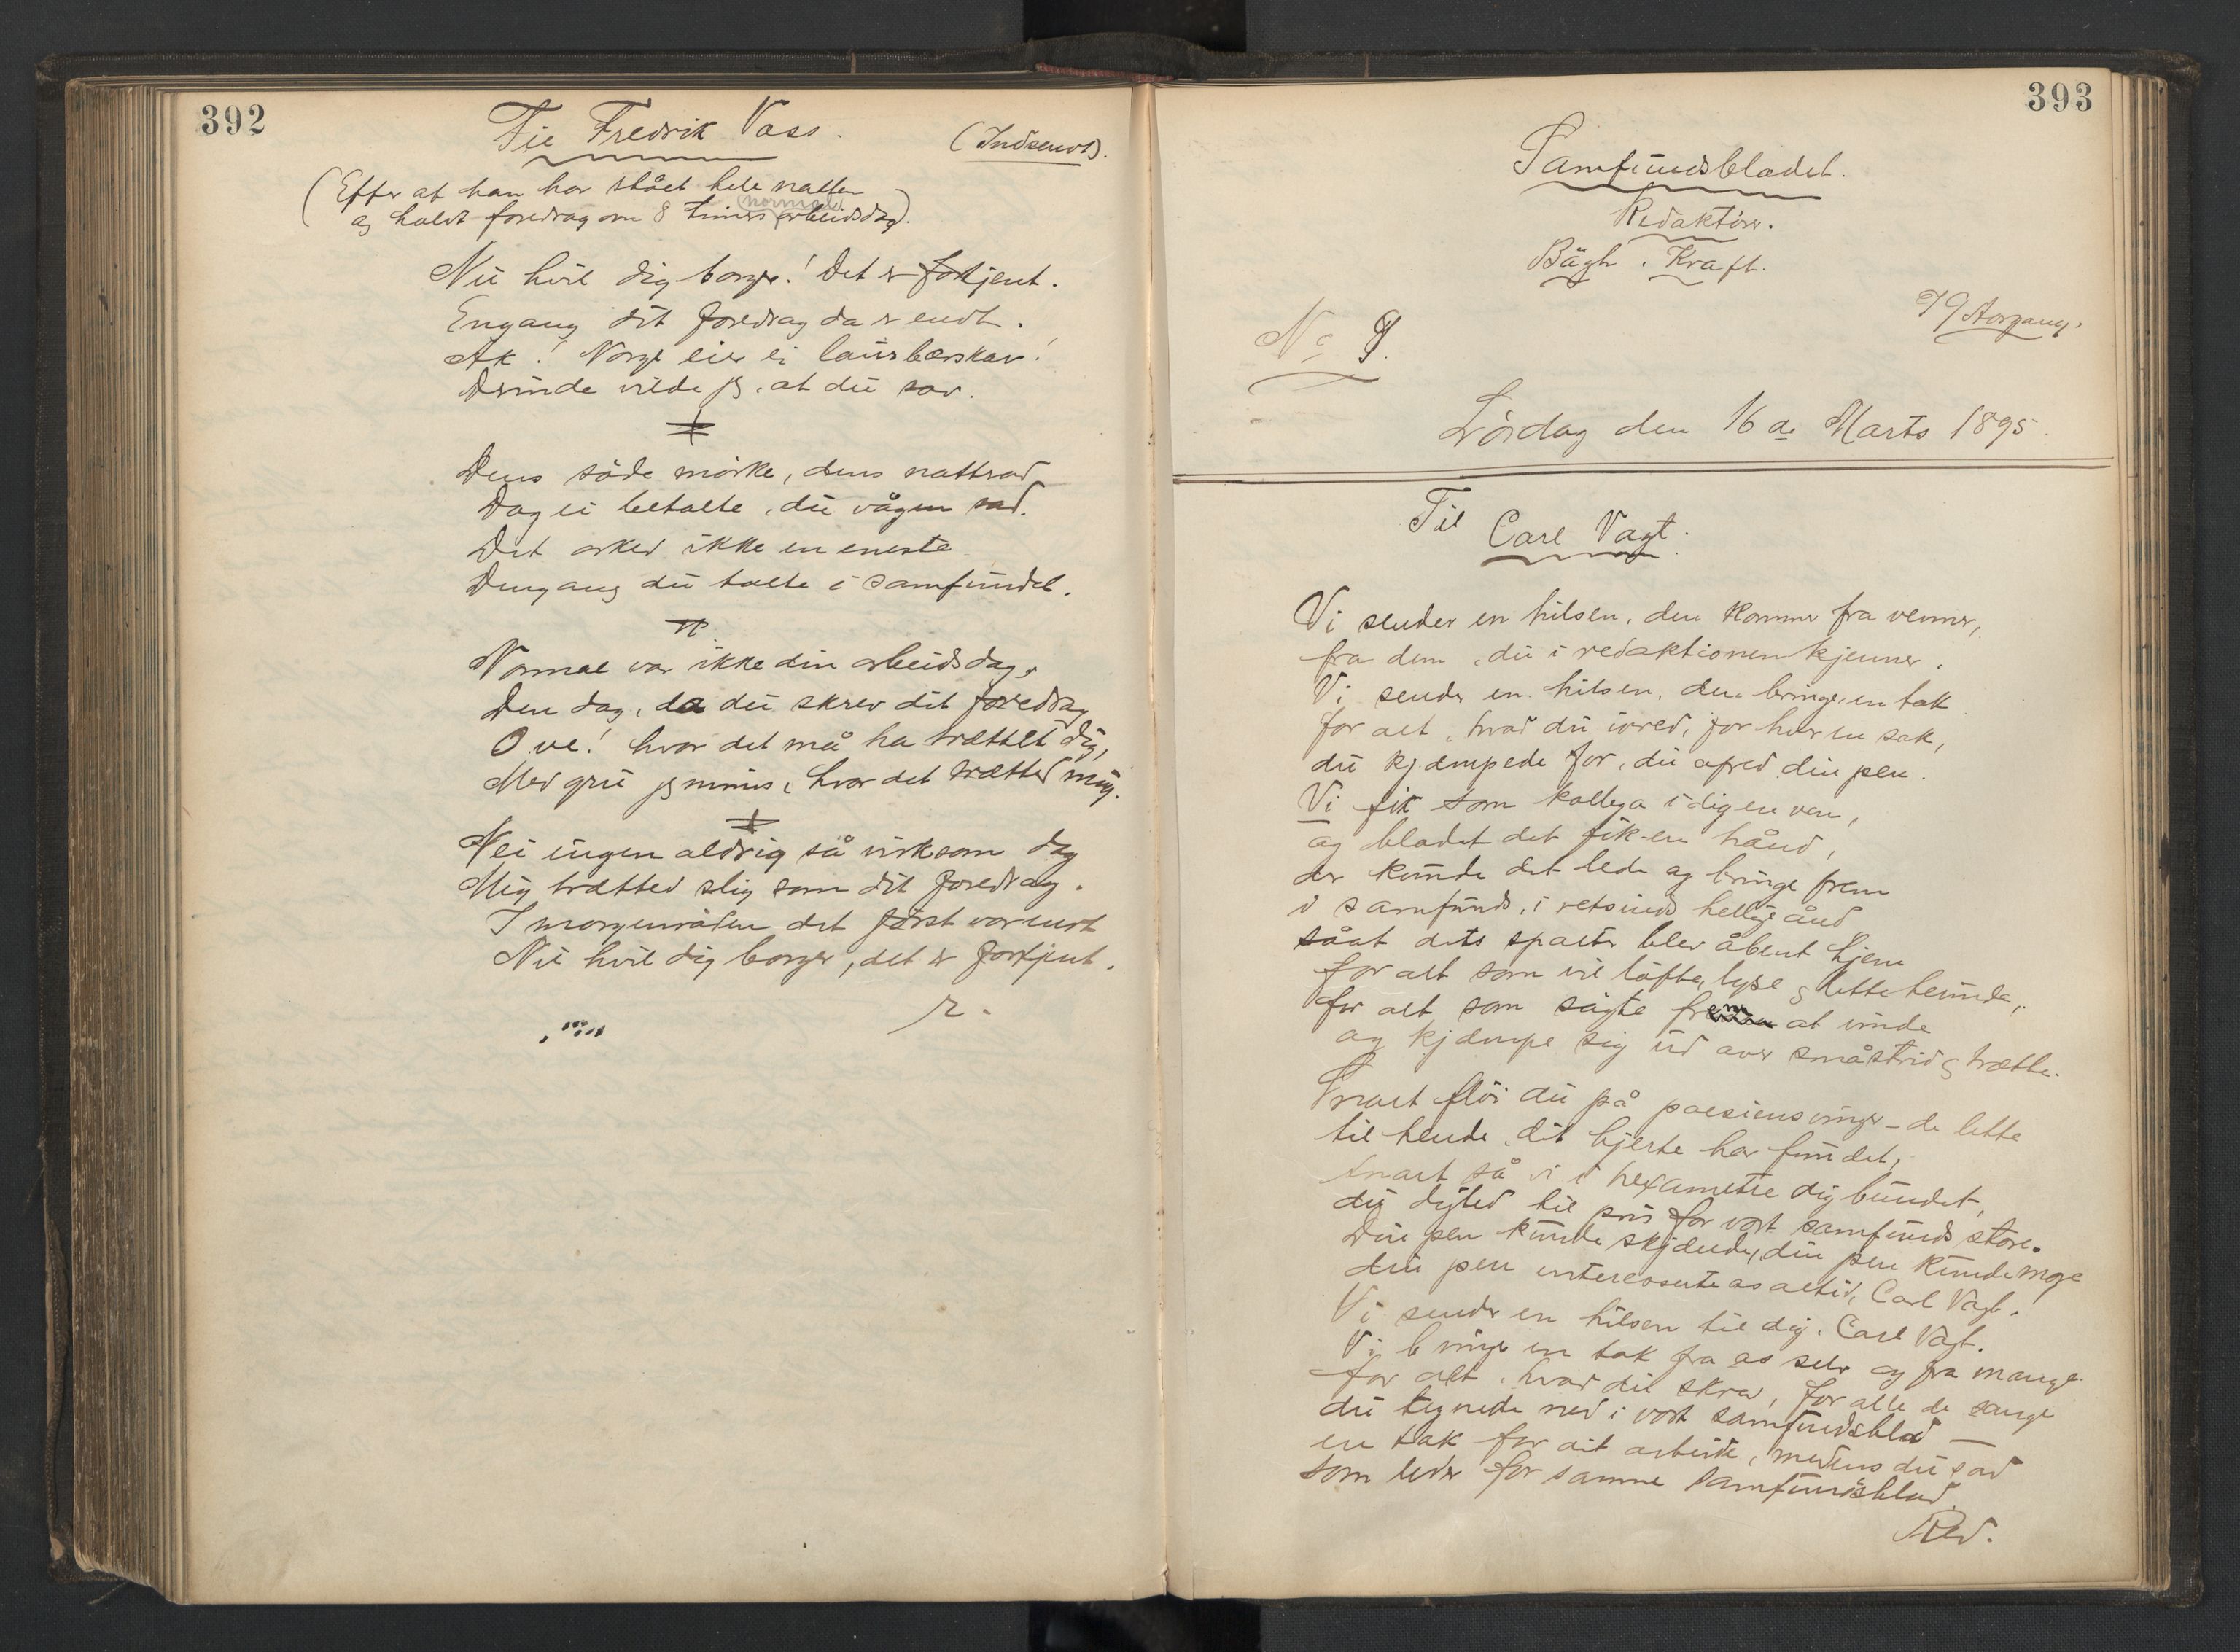 392
Til Fredrik Voss.
(Indsendt).
(Efter at han har stået hele natten
og holdt foredrag om 8 timers normal arbeidsdag).
Nu hvil dig borger! Det er fortjent.
Engang dit foredrag da er endt.
Ak! Norge eier ei laurbærskav!
Derinde vilde jeg, at du sov.
Dens söde mörke, dens nattrad
Dog ei betalte, du vågen sad.
Det orked ikke en eneste
Dengang du talte i samfundet.
Normal var ikke din arbeidsdag,
Den dag, da du skrev dit foredrag
O ve! hvor det må ha trættet dig,
Med gru jeg mines, hvor det trætted mig.
Nei ingen aldrig så virksom dag
Mig trætted slig som dit foredrag.
I morgenröden det först var endt
Nu hvil dig borger, det er fortjent.
r.
393
Samfundsbladet.
Redaktörer.
Bögh. Kraft.
79 Aargang.
No 9.
Lördag den 16de Marts 1895.
Til Carl Vagt.
Vi sender en hilsen, den kommer fra venner,
fra dem, du i redaktionen kjenner.
Vi sender en hilsen, den bringer en tak
for alt, hvad du ivred, for hver en sak,
du kjæmpede for, du ofred din pen.
Vi fik som kollega i dig en ven,
og bladet det fik en hånd,
der kunde det lede og bringe frem
i samfunds, i retsinds hellige ånd
såat dets spalter blev åbent hjem
for alt som vil löfte, lyse og lette herinde,
for alt som sögte frem at vinde
og kjæmpe sig ud over småstrid og trætte.
Snart flöi du på poesiens vinger – de lette
til hende, dit hjerte har fundet,
snart så vi i hexametre dig bundet,
du digted til pris for vort samfunds store.
Din pen kunde skjænde, din pen kunde more
din pen interesserte os altid, Carl Vagt.
Vi sender en hilsen til dig, Carl Vagt.
Vi bringer en tak fra os selv og fra mange
for alt, hvad du skrev, for alle de sange
du tegnede ned i vort samfundsblad –
en tak for dit arbeide, medens du sad
som leder for samme samfundsblad.
Red.